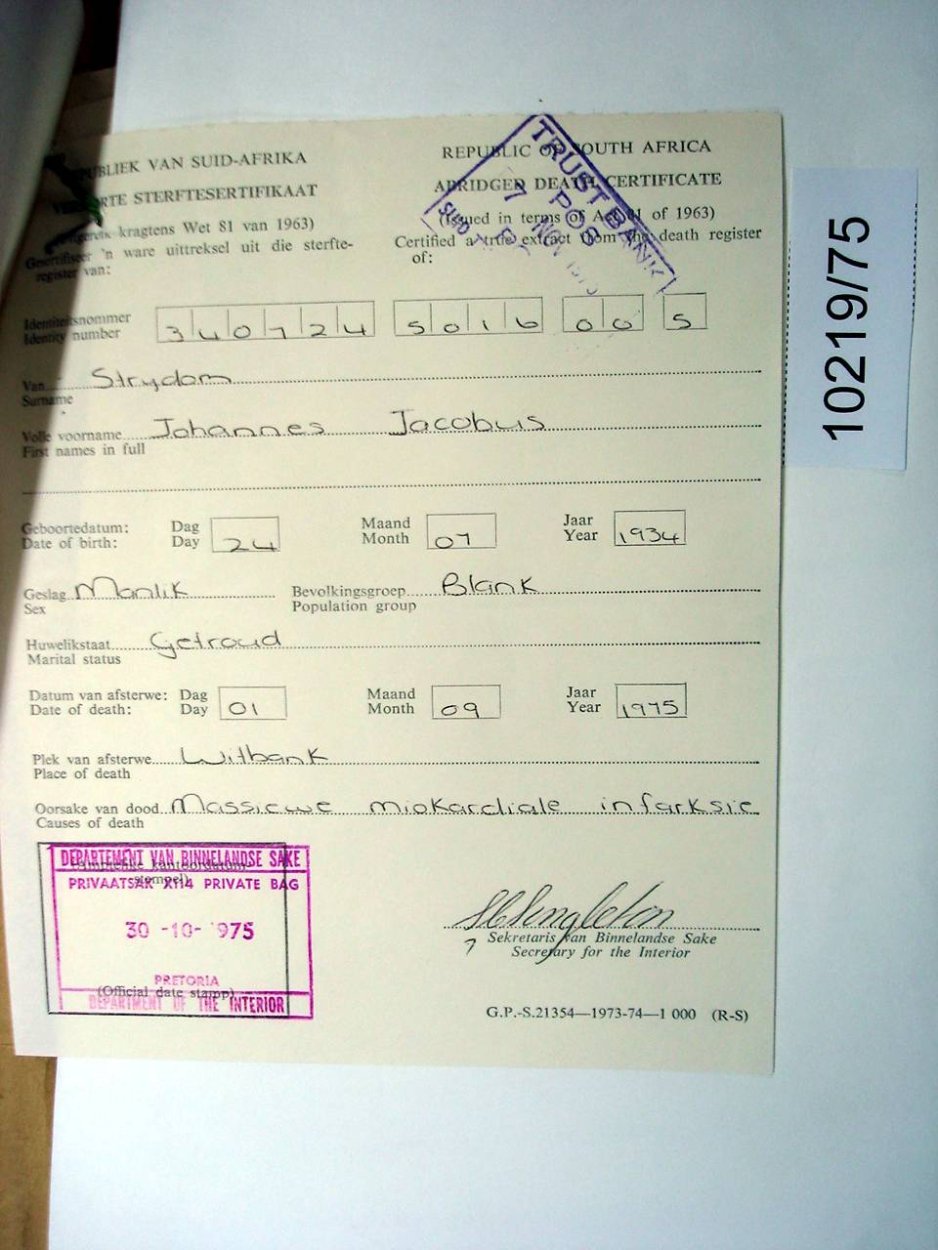 REPUBLIEK VAN SUID-AFRIKA
VERKORTE STERFTESERTIFIKAAT
kragtens Wet 81 van 1963)
Gesertifiseer 'n ware uittreksel uit die sterfte-
register van:
REPUBLIC OF SOUTH AFRICA
ABRIDGED DEATH CERTIFICATE
(Issued in terms of Act 81 of 1963)
Certified a true extract from the death register
of:
TRUST BANK
POS
NOV
SUID
Identiteitsnommer 340724 5016 00 5
Identity number
Van Strydom
Surname
Volle voorname Johannes Jacobus
First names in full
Geboortedatum: Dag 24 Maand 07 Jaar 1934
Date of birth: Day Month Year
Geslag Manlik Bevolkingsgroep Blank
Sex Population group
Huwelikstaat Getroud
Marital status
Datum van afsterwe: Dag 01 Maand 09 Jaar 1975
Date of death: Day Month Year
Plek van afsterwe Witbank
Place of death
Oorsake van dood Massiewe miokardiale infarksie
Causes of death
DEPARTEMENT VAN BINNELANDSE SAKE
(Amptelike kantoordatum-
stempel)
PRIVAATSAK X114 PRIVATE BAG
30 -10- 1975
PRETORIA
(Official date stamp)
DEPARTMENT OF THE INTERIOR
Singleton
Sekretaris van Binnelandse Sake
Secretary for the Interior
G.P.-S.21354—1973-74—1 000 (R-S)
10219/75